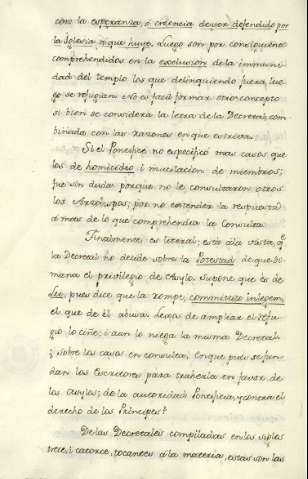 como la esperanza, ó creencia de ser defendido por
la Iglesia á que huye. Luego son por consiguiente
comprehendidos en la exclusion de la immuni-
dad del templo los que delinquiendo fuera, lue-
go se refugian. No es facil formar otro concepto
si bien se considera la letra de la Decretal com-
binada con las razones en que estriva.
Si el Pontifice no especificó mas casos que
los de homicidio, i mutilacion de miembros;
fue sin duda porque no le consultaron otros
los Arzobispos; por no estender la respuesta
á mas de lo que comprehendia la Consulta.
Finalmente es literal; está á la vista, qᵉ
la Decretal no decide sobre la Potestad de que di-
mana el privilegio de Asylo. Supone que es de
Lei, pues dice que la rompe, committit in legem,
el que de él abusa. Lexos de ampliar el refu-
gio, lo ciñe; i aun lo niega la misma Decretal
sobre los casos en consulta. Conque pues se fun-
dan los Escritores para traherla en favor de
los asylos; de la autoridad Pontificia, y contra el
derecho de los Principes?
De las Decretales compiladas en los siglos
trece, i catorce, tocantes á la materia, estas son las